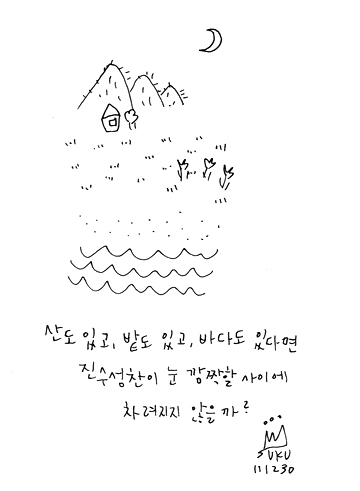 산도 있고, 밭도 있고, 바다도 있다면
진수성찬이 눈 깜짝할 사이에
차려지지 않을까?
SUKU
111230